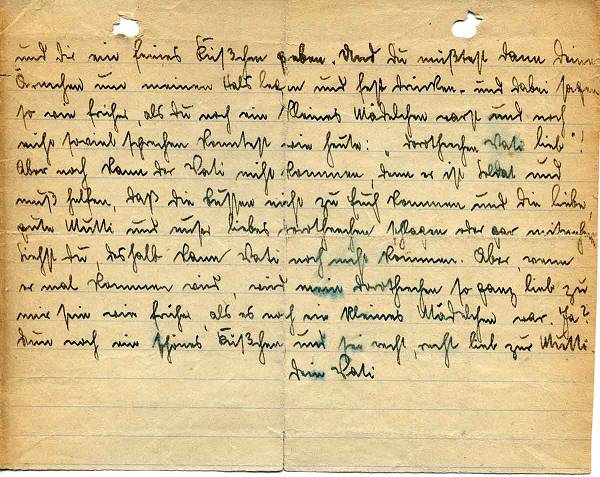 und dir ein feines Küßchen geben. Und du müßtest dann deine
Ärmchen um meinen Hals legen und fest drücken und dabei sagen
so wie früher, als du noch ein kleines Mädelchen warst und noch
nicht soviel sprechen konntest wie heute: „Dorothechen Vati lieb"!
Aber noch kann der Vati nicht kommen, denn er ist Soldat und
muß helfen, daß die Russen nicht zu euch kommen und die liebe,
gute Mutti und unser liebes Dorothechen schlagen oder gar mitnehmen
siehst du, deshalb kann Vati noch nicht kommen. Aber, wenn
er mal kommen wird, wird mein Dorothechen so ganz lieb zu
mir sein wie früher, als es noch ein kleines Mädelchen war. Ja?
Nun noch ein schönes Küßchen und sei recht, recht lieb zur Mutti.
Dein Vati